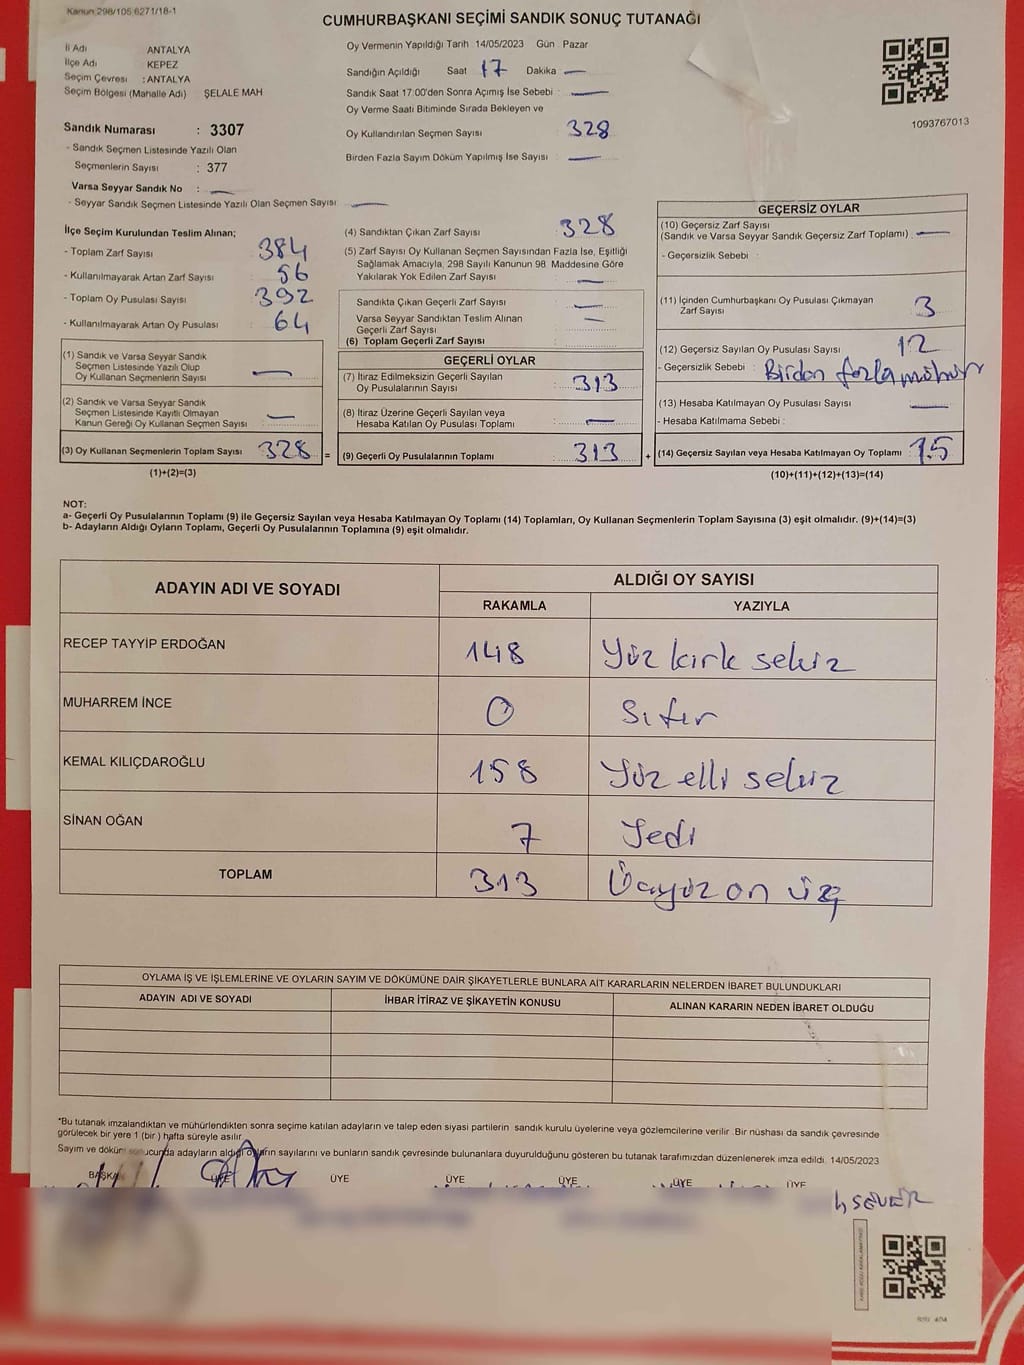 Kanun 298/105 6271/18-1
CUMHURBAŞKANI SEÇİMİ SANDIK SONUÇ TUTANAĞI
İl Adı ANTALYA
İlçe Adı KEPEZ
Seçim Çevresi : ANTALYA
Seçim Bölgesi (Mahalle Adı) ŞELALE MAH
Sandık Numarası : 3307
- Sandık Seçmen Listesinde Yazılı Olan
Seçmenlerin Sayısı : 377
Varsa Seyyar Sandık No : —
- Seyyar Sandık Seçmen Listesinde Yazılı Olan Seçmen Sayısı —
Oy Vermenin Yapıldığı Tarih 14/05/2023 Gün Pazar
Sandığın Açıldığı Saat 17 Dakika —
Sandık Saat 17:00'den Sonra Açımış İse Sebebi : —
Oy Verme Saati Bitiminde Sırada Bekleyen ve
Oy Kullandırılan Seçmen Sayısı 328
Birden Fazla Sayım Döküm Yapılmış İse Sayısı —
1093767013
İlçe Seçim Kurulundan Teslim Alınan;
- Toplam Zarf Sayısı 384
- Kullanılmayarak Artan Zarf Sayısı 56
- Toplam Oy Pusulası Sayısı 392
- Kullanılmayarak Artan Oy Pusulası 64
(1) Sandık ve Varsa Seyyar Sandık
Seçmen Listesinde Yazılı Olup
Oy Kullanan Seçmenlerin Sayısı —
(2) Sandık ve Varsa Seyyar Sandık
Seçmen Listesinde Kayıtlı Olmayan
Kanun Gereği Oy Kullanan Seçmen Sayısı —
(3) Oy Kullanan Seçmenlerin Toplam Sayısı 328 =
(1)+(2)=(3)
(4) Sandıktan Çıkan Zarf Sayısı 328
(5) Zarf Sayısı Oy Kullanan Seçmen Sayısından Fazla İse, Eşitliği
Sağlamak Amacıyla, 298 Sayılı Kanunun 98. Maddesine Göre
Yakılarak Yok Edilen Zarf Sayısı —
Sandıkta Çıkan Geçerli Zarf Sayısı —
Varsa Seyyar Sandıktan Teslim Alınan
Geçerli Zarf Sayısı —
(6) Toplam Geçerli Zarf Sayısı
GEÇERLİ OYLAR
(7) İtiraz Edilmeksizin Geçerli Sayılan
Oy Pusulalarının Sayısı 313
(8) İtiraz Üzerine Geçerli Sayılan veya
Hesaba Katılan Oy Pusulası Toplamı —
(9) Geçerli Oy Pusulalarının Toplamı 313 +
GEÇERSİZ OYLAR
(10) Geçersiz Zarf Sayısı
(Sandık ve Varsa Seyyar Sandık Geçersiz Zarf Toplamı) —
- Geçersizlik Sebebi :
(11) İçinden Cumhurbaşkanı Oy Pusulası Çıkmayan
Zarf Sayısı 3
(12) Geçersiz Sayılan Oy Pusulası Sayısı 12
- Geçersizlik Sebebi : Birden fazla mühür
(13) Hesaba Katılmayan Oy Pusulası Sayısı —
- Hesaba Katılmama Sebebi :
(14) Geçersiz Sayılan veya Hesaba Katılmayan Oy Toplamı 15
(10)+(11)+(12)+(13)=(14)
NOT:
a- Geçerli Oy Pusulalarının Toplamı (9) ile Geçersiz Sayılan veya Hesaba Katılmayan Oy Toplamı (14) Toplamları, Oy Kullanan Seçmenlerin Toplam Sayısına (3) eşit olmalıdır. (9)+(14)=(3)
b- Adayların Aldığı Oyların Toplamı, Geçerli Oy Pusulalarının Toplamına (9) eşit olmalıdır.
ADAYIN ADI VE SOYADI ALDIĞI OY SAYISI
RAKAMLA YAZIYLA
RECEP TAYYİP ERDOĞAN 148 Yüz kırk sekiz
MUHARREM İNCE 0 Sıfır
KEMAL KILIÇDAROĞLU 158 Yüz elli sekiz
SİNAN OĞAN 7 Yedi
TOPLAM 313 Üçyüz on üç
OYLAMA İŞ VE İŞLEMLERİNE VE OYLARIN SAYIM VE DÖKÜMÜNE DAİR ŞİKAYETLERLE BUNLARA AİT KARARLARIN NELERDEN İBARET BULUNDUKLARI
ADAYIN ADI VE SOYADI İHBAR İTİRAZ VE ŞİKAYETİN KONUSU ALINAN KARARIN NEDEN İBARET OLDUĞU
*Bu tutanak imzalandıktan ve mühürlendikten sonra seçime katılan adayların ve talep eden siyasi partilerin sandık kurulu üyelerine veya gözlemcilerine verilir. Bir nüshası da sandık çevresinde
görülecek bir yere 1 (bir) hafta süreyle asılır.
Sayım ve döküm sonucunda adayların aldığı oyların sayılarını ve bunların sandık çevresinde bulunanlara duyurulduğunu gösteren bu tutanak tarafımızdan düzenlenerek imza edildi. 14/05/2023
BAŞKAN ÜYE ÜYE ÜYE ÜYE ÜYE ÜYE
SEVER